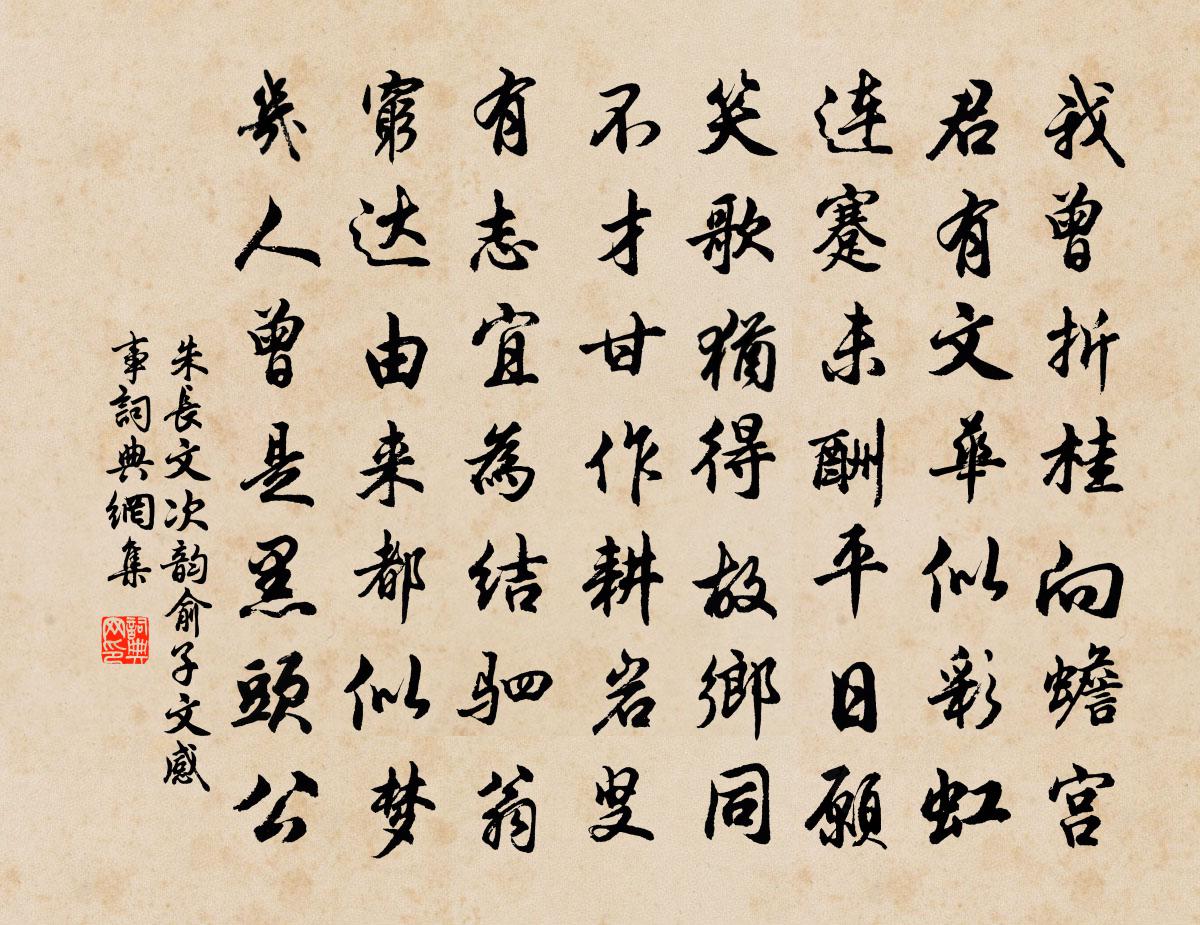 我曾折桂向蟾宫
君有文華似彩虹
連蹇未酬平日願
笑歌猶得故鄉同
不才甘作耕岩叟
有志宜為結驷翁
窮达由来都似梦
幾人曾是黑頭公
朱長文次韵俞子文感
事詞典網集
詞典
网印